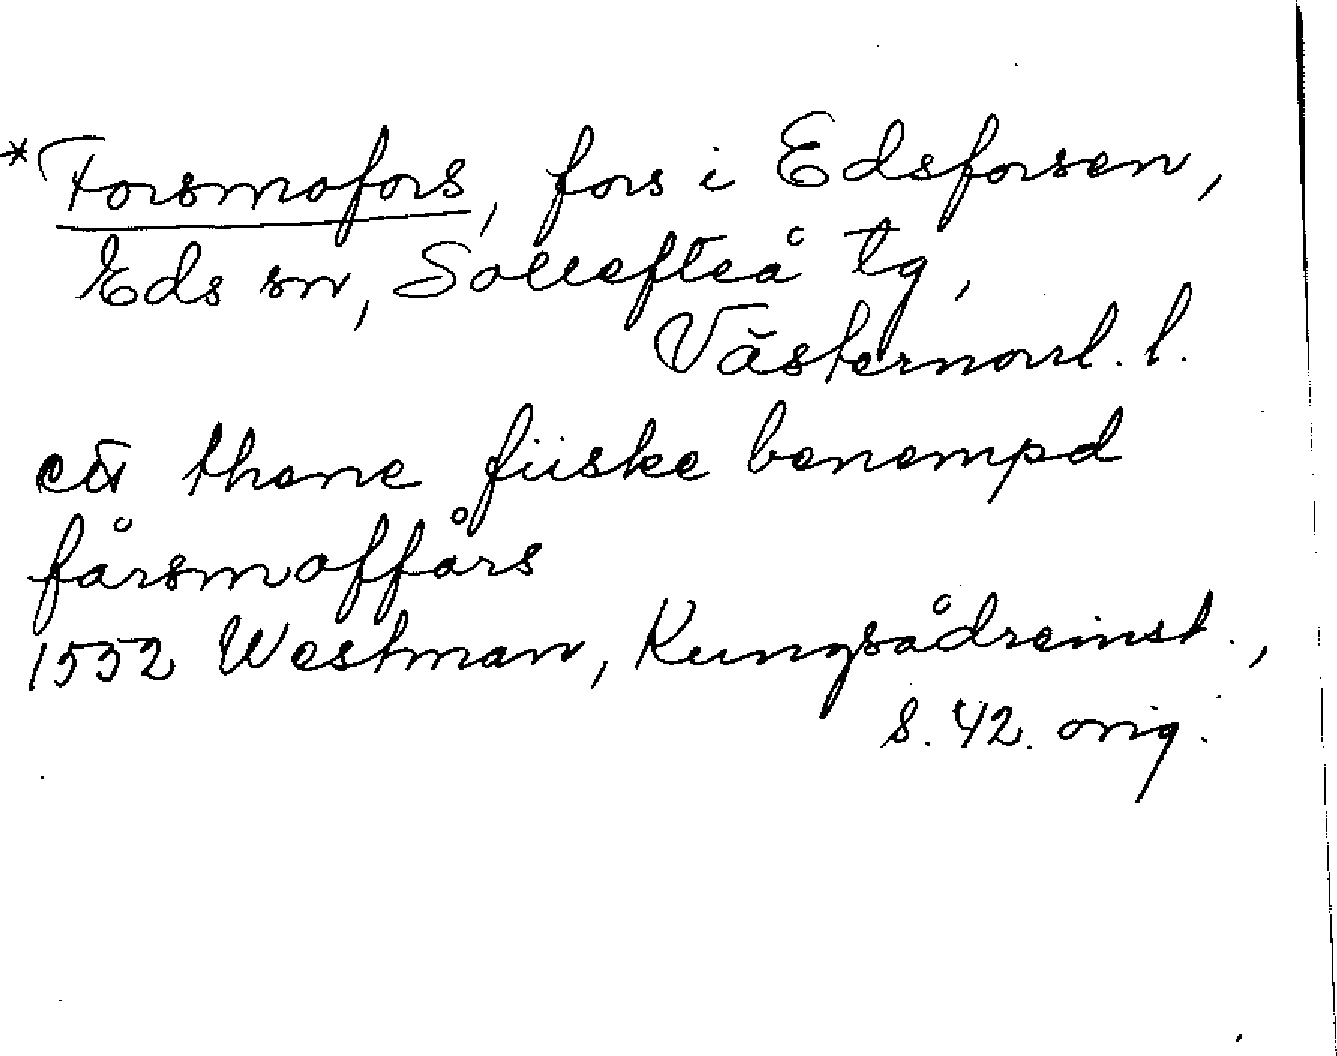 *Forsmofors, fors i Edsforsen,
Eds sn, Sollefteå tg,
Västernorrl. l.
ett thene fiiske benempd
fårsmoffårs
1552 Westman, Kungsådreinst.,
s. 42. orig.